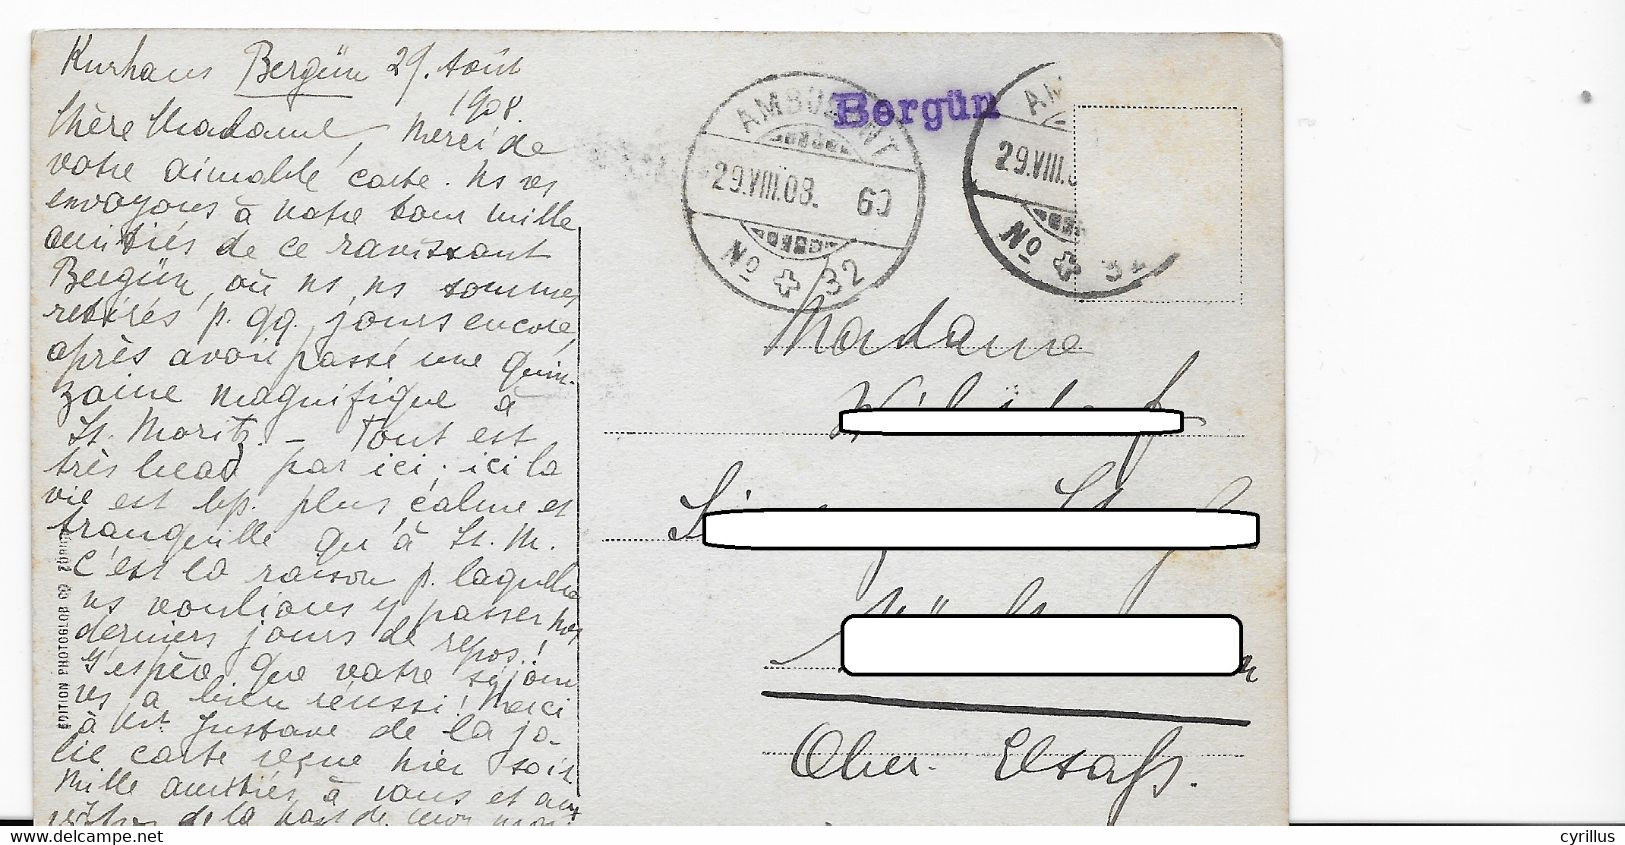 Kurhaus Bergün 29. Août
1908.
Chère Madame, Merci de
votre aimable carte. Ns vs
envoyons à notre tour mille
amitiés de ce ravissant
Bergün, où ns ns sommes
retirés p. qq. jours encore,
après avoir passé une quin-
zaine magnifique à
St. Moritz. – Tout est
très beau par ici; ici la
vie est bp. plus calme et
tranquille qu'à St. M.
C'est la raison p. laquelle
ns voulions y passer nos
derniers jours de repos!
J'espère que votre séjour
vs a bien réussi! Merci
à Mr. Gustave de la jo-
lie carte reçue hier soir
Mille amitiés à vous et aux
de la part de mon
EDITION PHOTOGLOB CO ZÜRICH
AMBULANT
29.VIII.08.
No 32
Bergün
AM
29.VIII.0
No 32
Madame
Ober-Elsaß.
cyrillus
delcampe.net